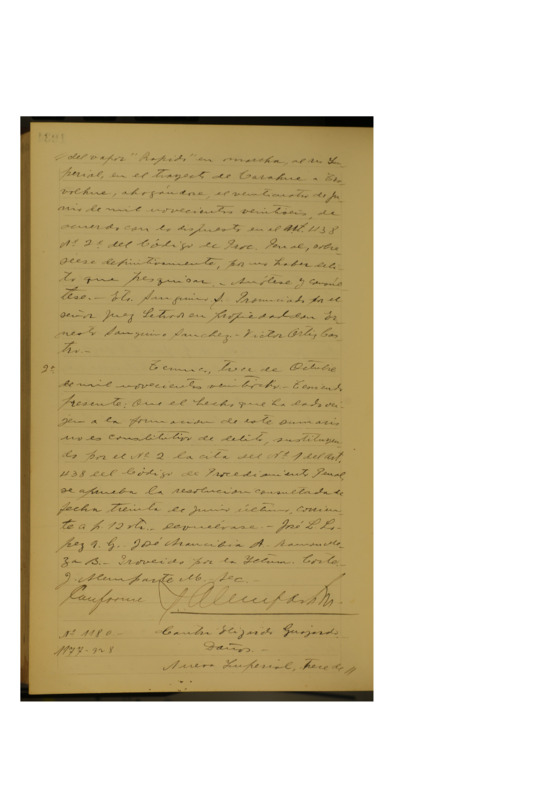 del vapor "Rapido" en marcha, al rio Im-
perial, en el trayecto de Carahue a
ahogándose, el veintinueve de Ju
nio de mil novecientos veintiseis, de
acuerdo con lo dispuesto en el Art. 438
Nº 2º del Código de Proc. Penal, sobre-
sease definitivamente, por no haber deli-
to que pesquisar. Anótese y consúl
tese.- Fdo. Sanguino S. Pronunciado por el
señor Juez Letrado en propiedad don Er
nesto Sanguino Sanchez.- Victor Ortiz Cas
tro.-
2º Temuco, trece de Octubre
de mil novecientos veintiocho.- Teniendo
presente: Que el hecho que ha dado ori-
gen a la formacion de este sumario
no es constitutivo de delito, sustituyen
do por el Nº 2 la cita del Nº 1 del Art.
438 del Código de Procedimiento Penal,
se aprueba la resolucion consultada de
fecha treinta de junio último, corrien-
te a f. 12 vta. Devuélvase.- José L. Ló-
pez
Proveido por la Iltma. Corte.
J. Alemparte M. Sec.-
Conforme
Nº 1180.- Contra Elizardo Guajardo
Daños.-
Nueva Imperial, Trece de